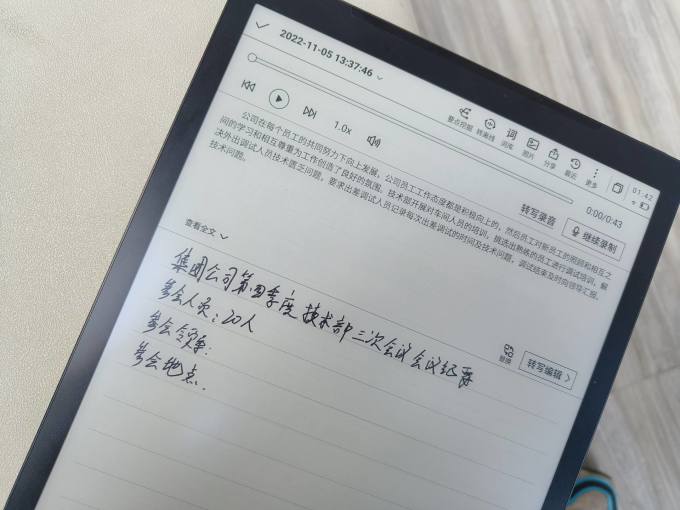 2022-11-05 13:37:46
要点挖掘 转离线 词库 图片 分享 最近 更多
01:42
0:00/0:43
1.0x
转写录音 继续录制
公司在每个员工的共同努力下向上发展，公司员工工作态度都是积极向上的，然后员工对新员工的照顾和相互之
间的学习和相互尊重为工作创造了良好的氛围。技术部开展对车间人员的培训，挑选出熟练的员工进行调试培训，解
决外出调试人员技术匮乏问题，要求出差调试人员记录每次出差调试的时间及技术问题，调试结束及时向领导汇报。
技术问题。
查看全文
集团公司第四季度技术部三次会议会议纪要
参会人员：20人
参会领导：
参会地点.
替换 转写编辑